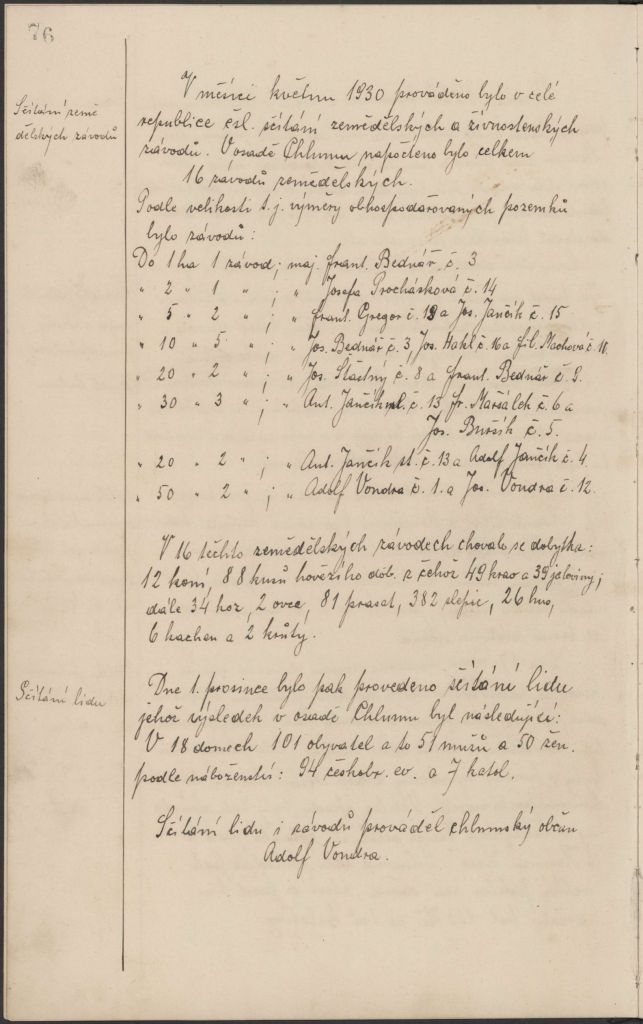 76
Sčítání země
dělských závodů
V měsíci květnu 1930 prováděno bylo v celé
republice čsl. sčítání zemědělských a živnostenských
závodů. V osadě Chlumu napočteno bylo celkem
16 závodů zemědělských.
Podle velikosti t.j. výměry obhospodařovaných pozemků
bylo závodů:
Do 1 ha 1 závod; maj. frant. Bednář č. 3
" 2 " 1 " ; " Josefa Procházková č. 14
" 5 " 2 " ; " frant. Gregor č. 18 a Jos. Jančík č. 15
" 10 " 5 " ; " Jos. Bednář č. 3, Jos. Hakl č. 16 a fil. Machová č. 10.
" 20 " 2 " ; " Jos. Šťastný č. 8 a frant. Bednář č. 9.
" 30 " 3 " ; " Ant. Jančík ml. č. 13, fr. Maršálek č. 6 a
Jos. Buršík č. 5.
" 20 " 2 " ; " Ant. Jančík st. č. 13 a Adolf Jančík č. 4.
" 50 " 2 " ; " Adolf Vondra č. 1. a Jos. Vondra č. 12.
V 16 těchto zemědělských závodech chovalo se dobytka:
12 koní, 88 kusů hovězího dob. z čehož 49 krav a 39 jaloviny;
dále 34 koz, 2 ovce, 81 prasat, 382 slepic, 26 hus,
6 kachen a 2 krůty.
Sčítání lidu
Dne 1. prosince bylo pak provedeno sčítání lidu
jehož výsledek v osadě Chlumu byl následující:
V 18 domech 101 obyvatel a to 51 mužů a 50 žen.
podle náboženství: 94 českobr. ev. a 7 katol.
Sčítání lidu i závodů prováděl chlumský občan
Adolf Vondra.